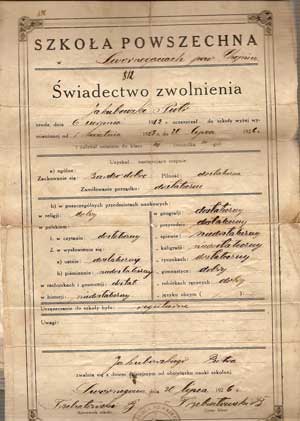 SZKOŁA POWSZECHNA
pow.
Świadectwo zwolnienia
Jakubowski Piotr
urodz. dnia 6 sierpnia 1912 r. uczęszczał do szkoły wyżej wy-
mienionej od 1 kwietnia do 20 lipca 1926
i należał ostatnio do klasy
Uzyskał następujące stopnie:
a) ogólne:
Zachowanie się: bardzo dobre Pilność: dostateczna
Zamiłowanie porządku: dostateczne
b) w poszczególnych przedmiotach naukowych
w religji: dobry
w polskiem:
1. w czytaniu: dostateczny
2. w wysłowieniu się:
a) ustnie: dostateczny
b) piśmiennie: niedostateczny
w rachunkach i geometrji: dostat.
w historji: niedostateczny
w geografji: dostateczny
w przyrodzie: dostateczny
w śpiewie: niedostateczny
w kaligrafji: niedostateczny
w rysunkach: dostateczny
w gimnastyce: dobry
w robótkach ręcznych: dobry
w języku obcym ( )
Uczęszczanie do szkoły było: regularne
Uwagi:
Jakubowskiego Piotra
zwalnia się z dniem dzisiejszym od obowiązku nauki szkolnej.
dnia 20 lipca 1926 r.